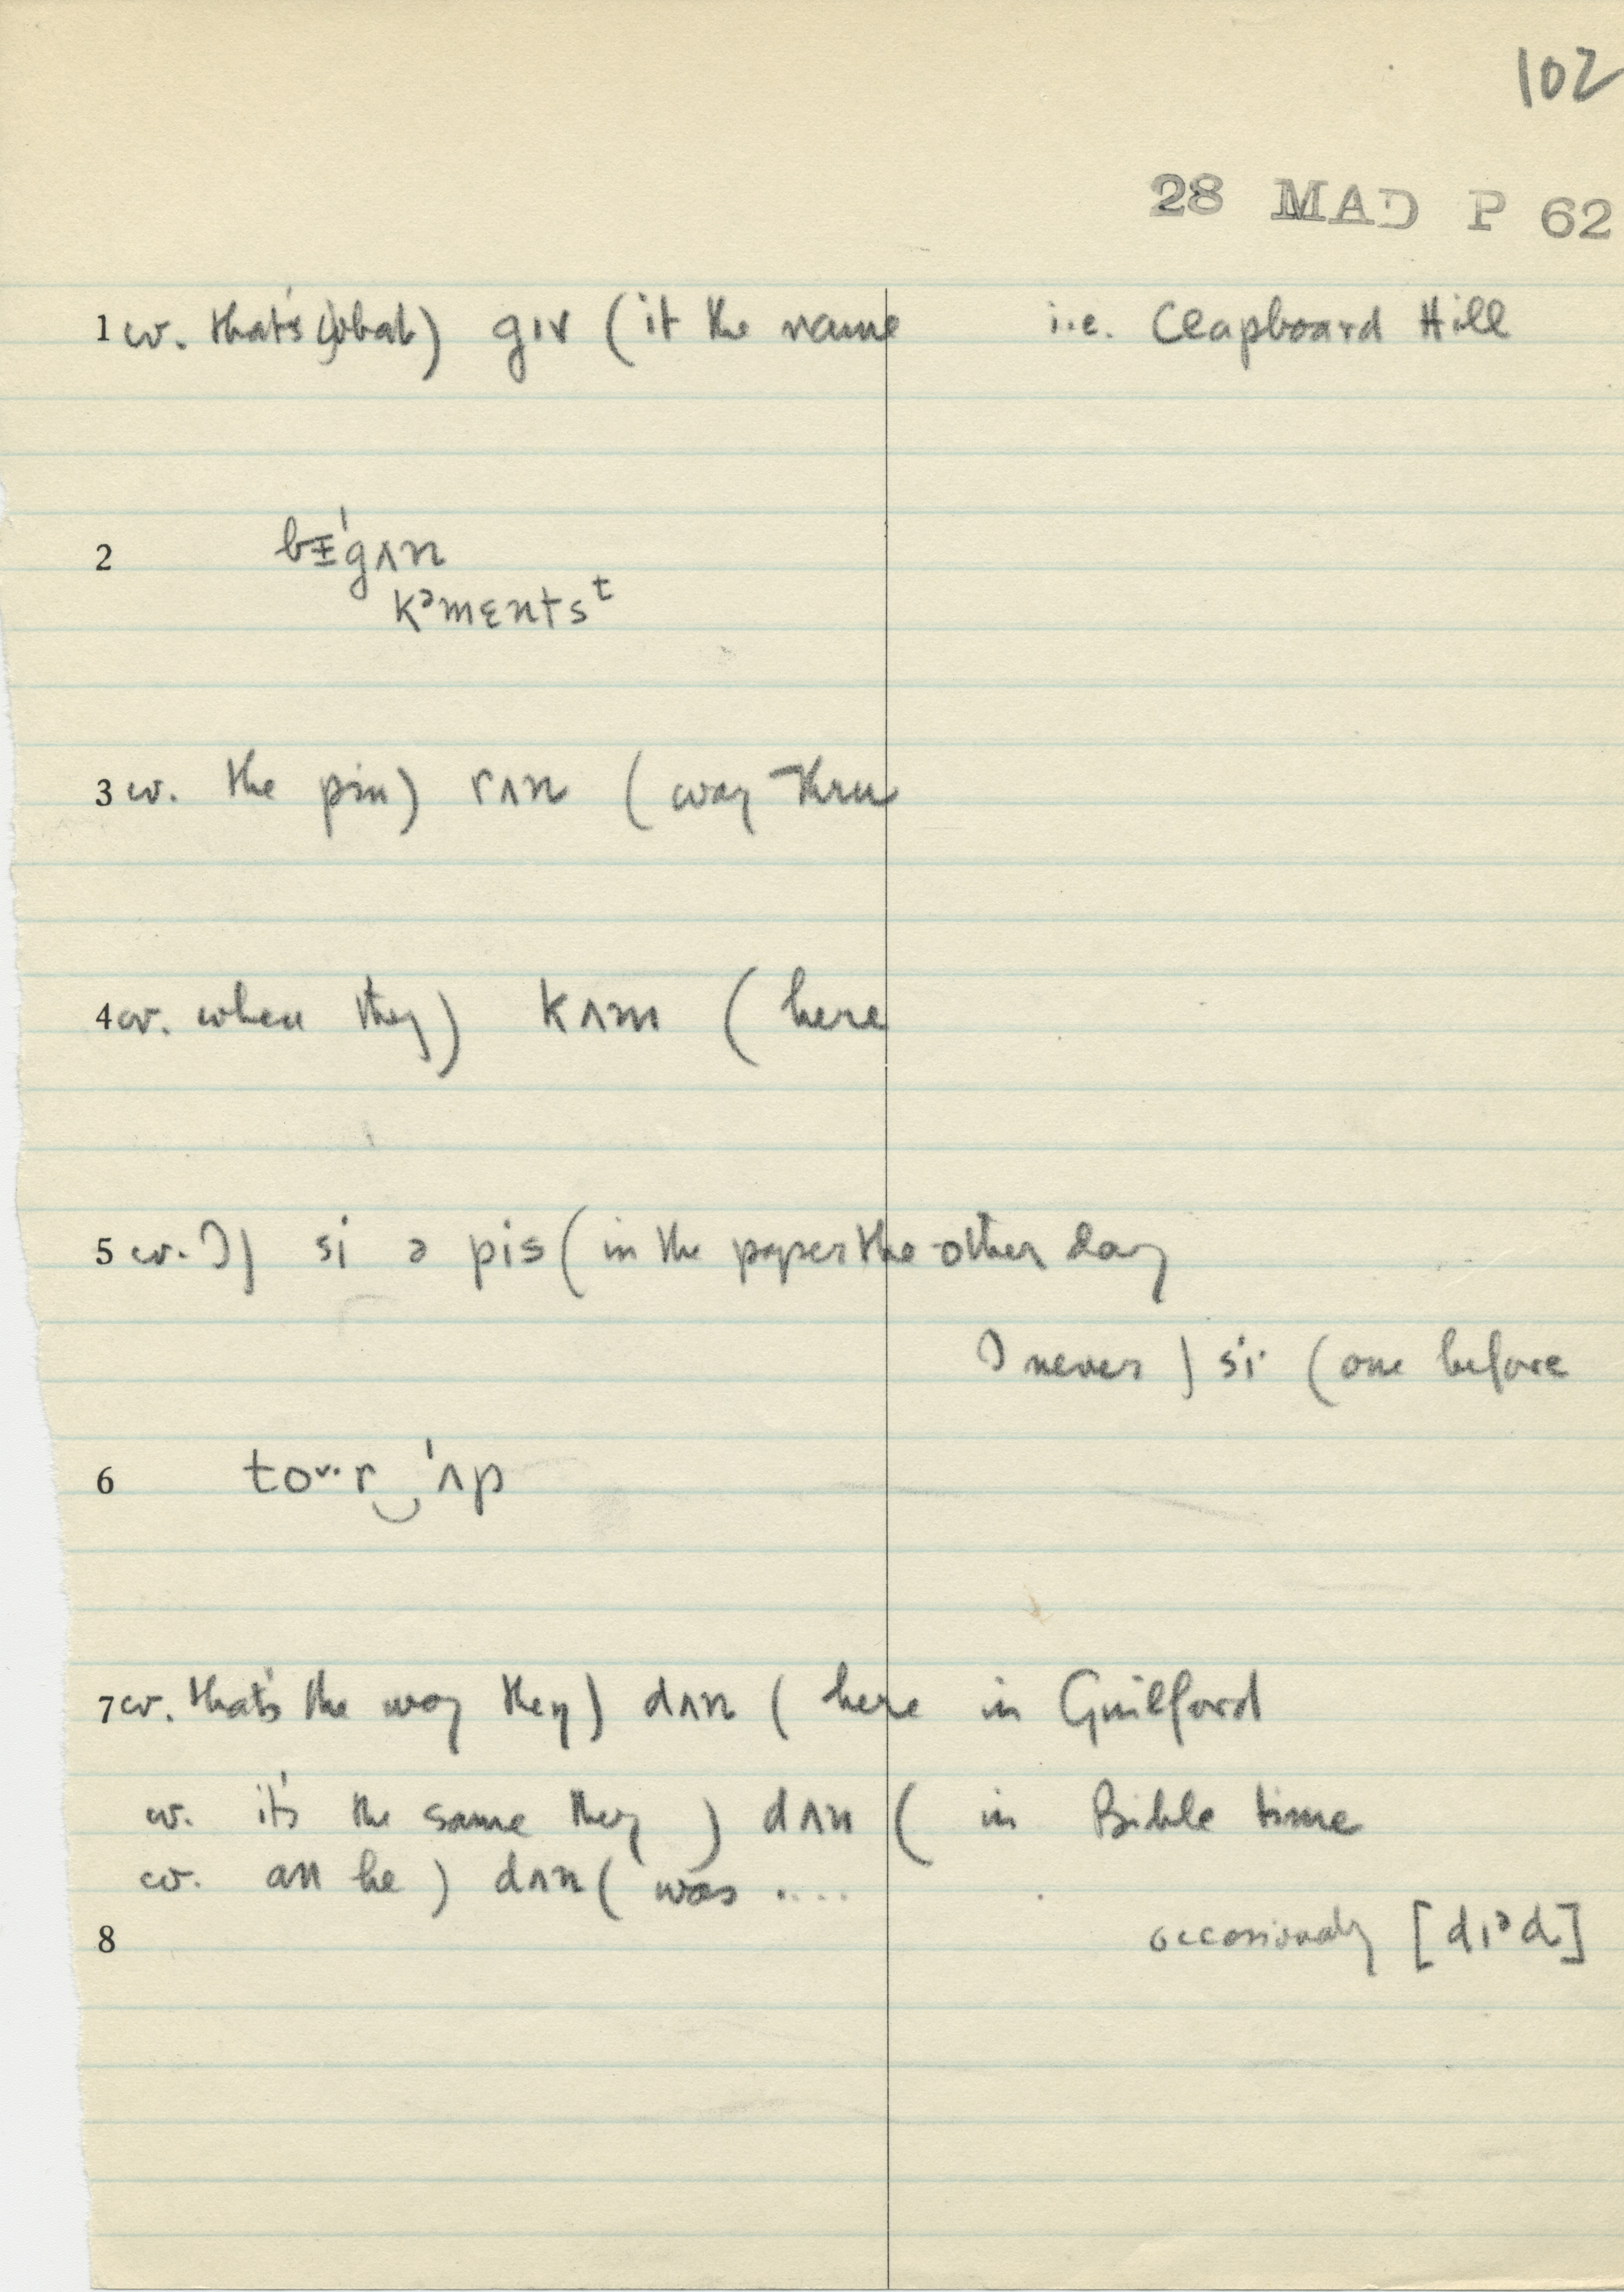 102
28 MAD P 62
1 cv. that's what) gɪv (it the name i.e. Clapboard Hill
2 bɪ̵'gʌn
kᵊmɛntsᵗ
3 cv. the pin) rʌn (way thru
4 cv. when they) kʌm (here
5 cv. I) si ə pis (in the paper the other day
I never) si· (one before
6 to‿r‿'ʌp
7 cv. that's the way they) dʌn (here in Guilford
cv. it's the same they) dʌn (in Bible time
cv. all he) dʌn (was ....
8 occasionally [dɪᵊd]